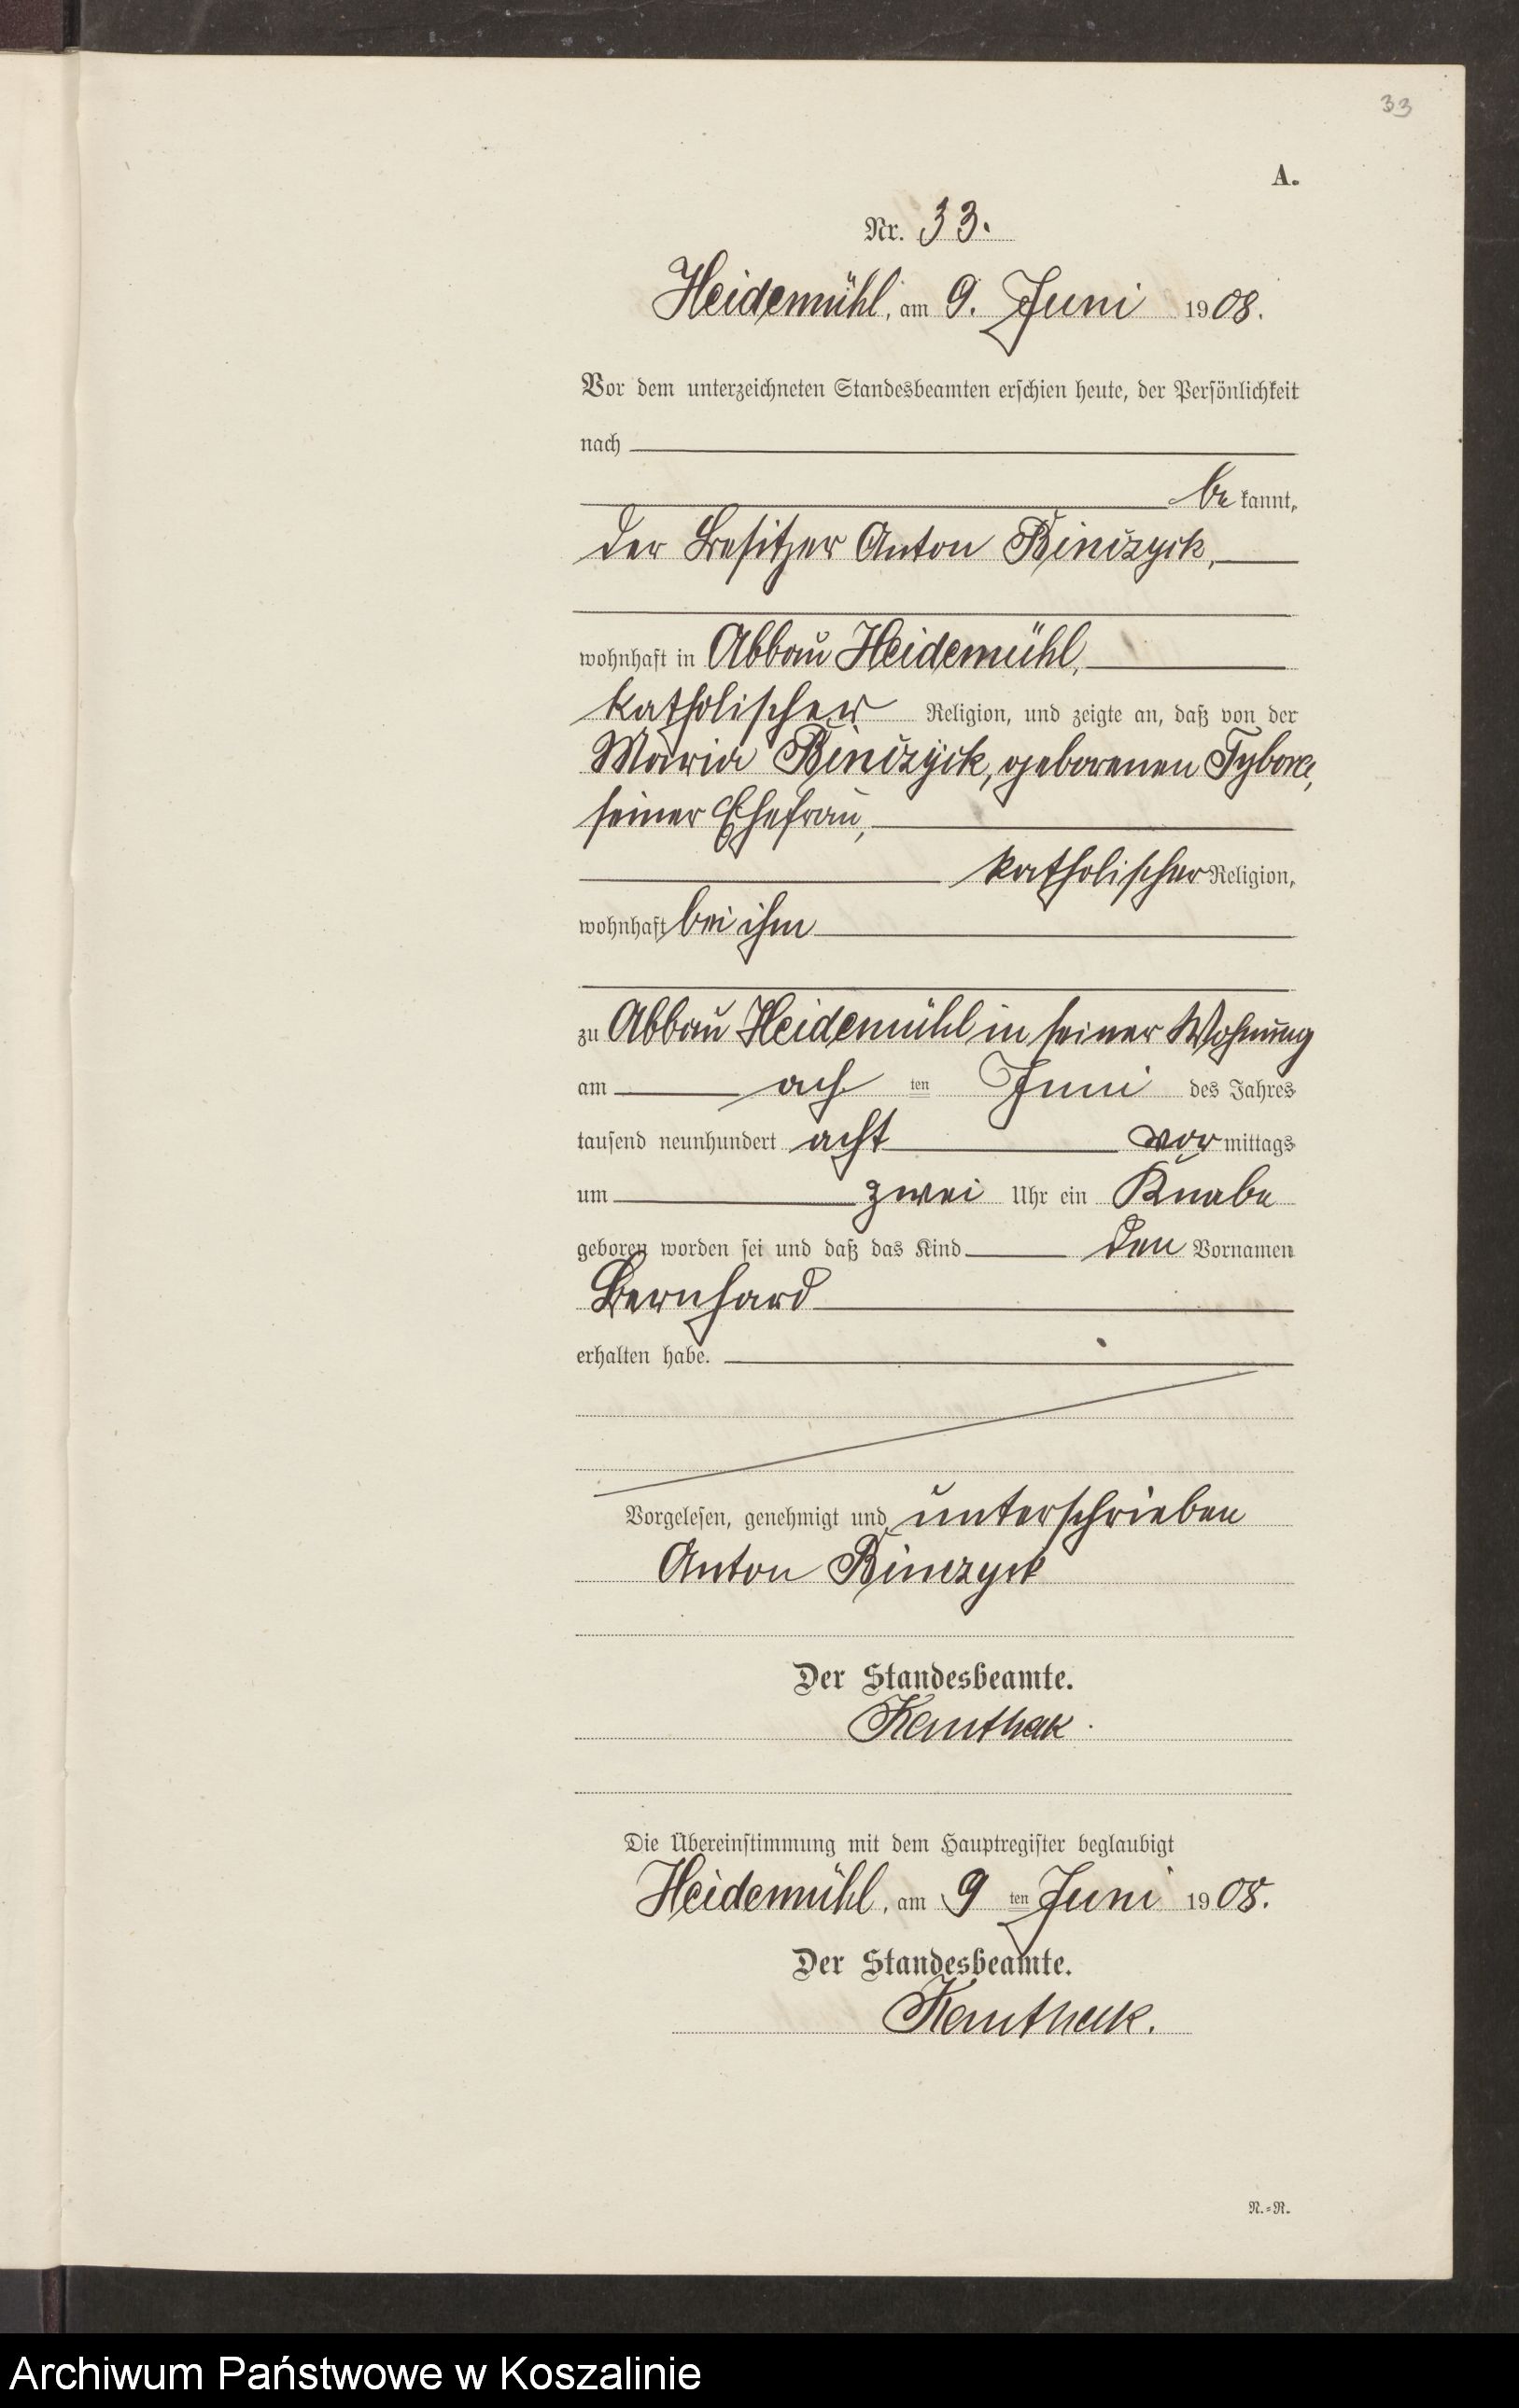 33
A.
Nr. 33.
Heidemühl, am 9. Juni 1908.
Vor dem unterzeichneten Standesbeamten erschien heute, der Persönlichkeit
nach
be kannt,
der Besitzer Anton Binczyck,
wohnhaft in Abbau Heidemühl,
katholischer Religion, und zeigte an, daß von der
Maria Binczyck, geborenen Tybora,
seiner Ehefrau,
katholischer Religion,
wohnhaft bei ihm
zu Abbau Heidemühl in seiner Wohnung
am ach ten Juni des Jahres
tausend neunhundert acht vor mittags
um zwei Uhr ein Knabe
geboren worden sei und daß das Kind den Vornamen
Bernhard
erhalten habe.
Vorgelesen, genehmigt und unterschrieben
Anton Binczyck
Der Standesbeamte.
Die Übereinstimmung mit dem Hauptregister beglaubigt
Heidemühl, am 9 ten Juni 1908.
Der Standesbeamte.
N.=R.
Archiwum Państwowe w Koszalinie